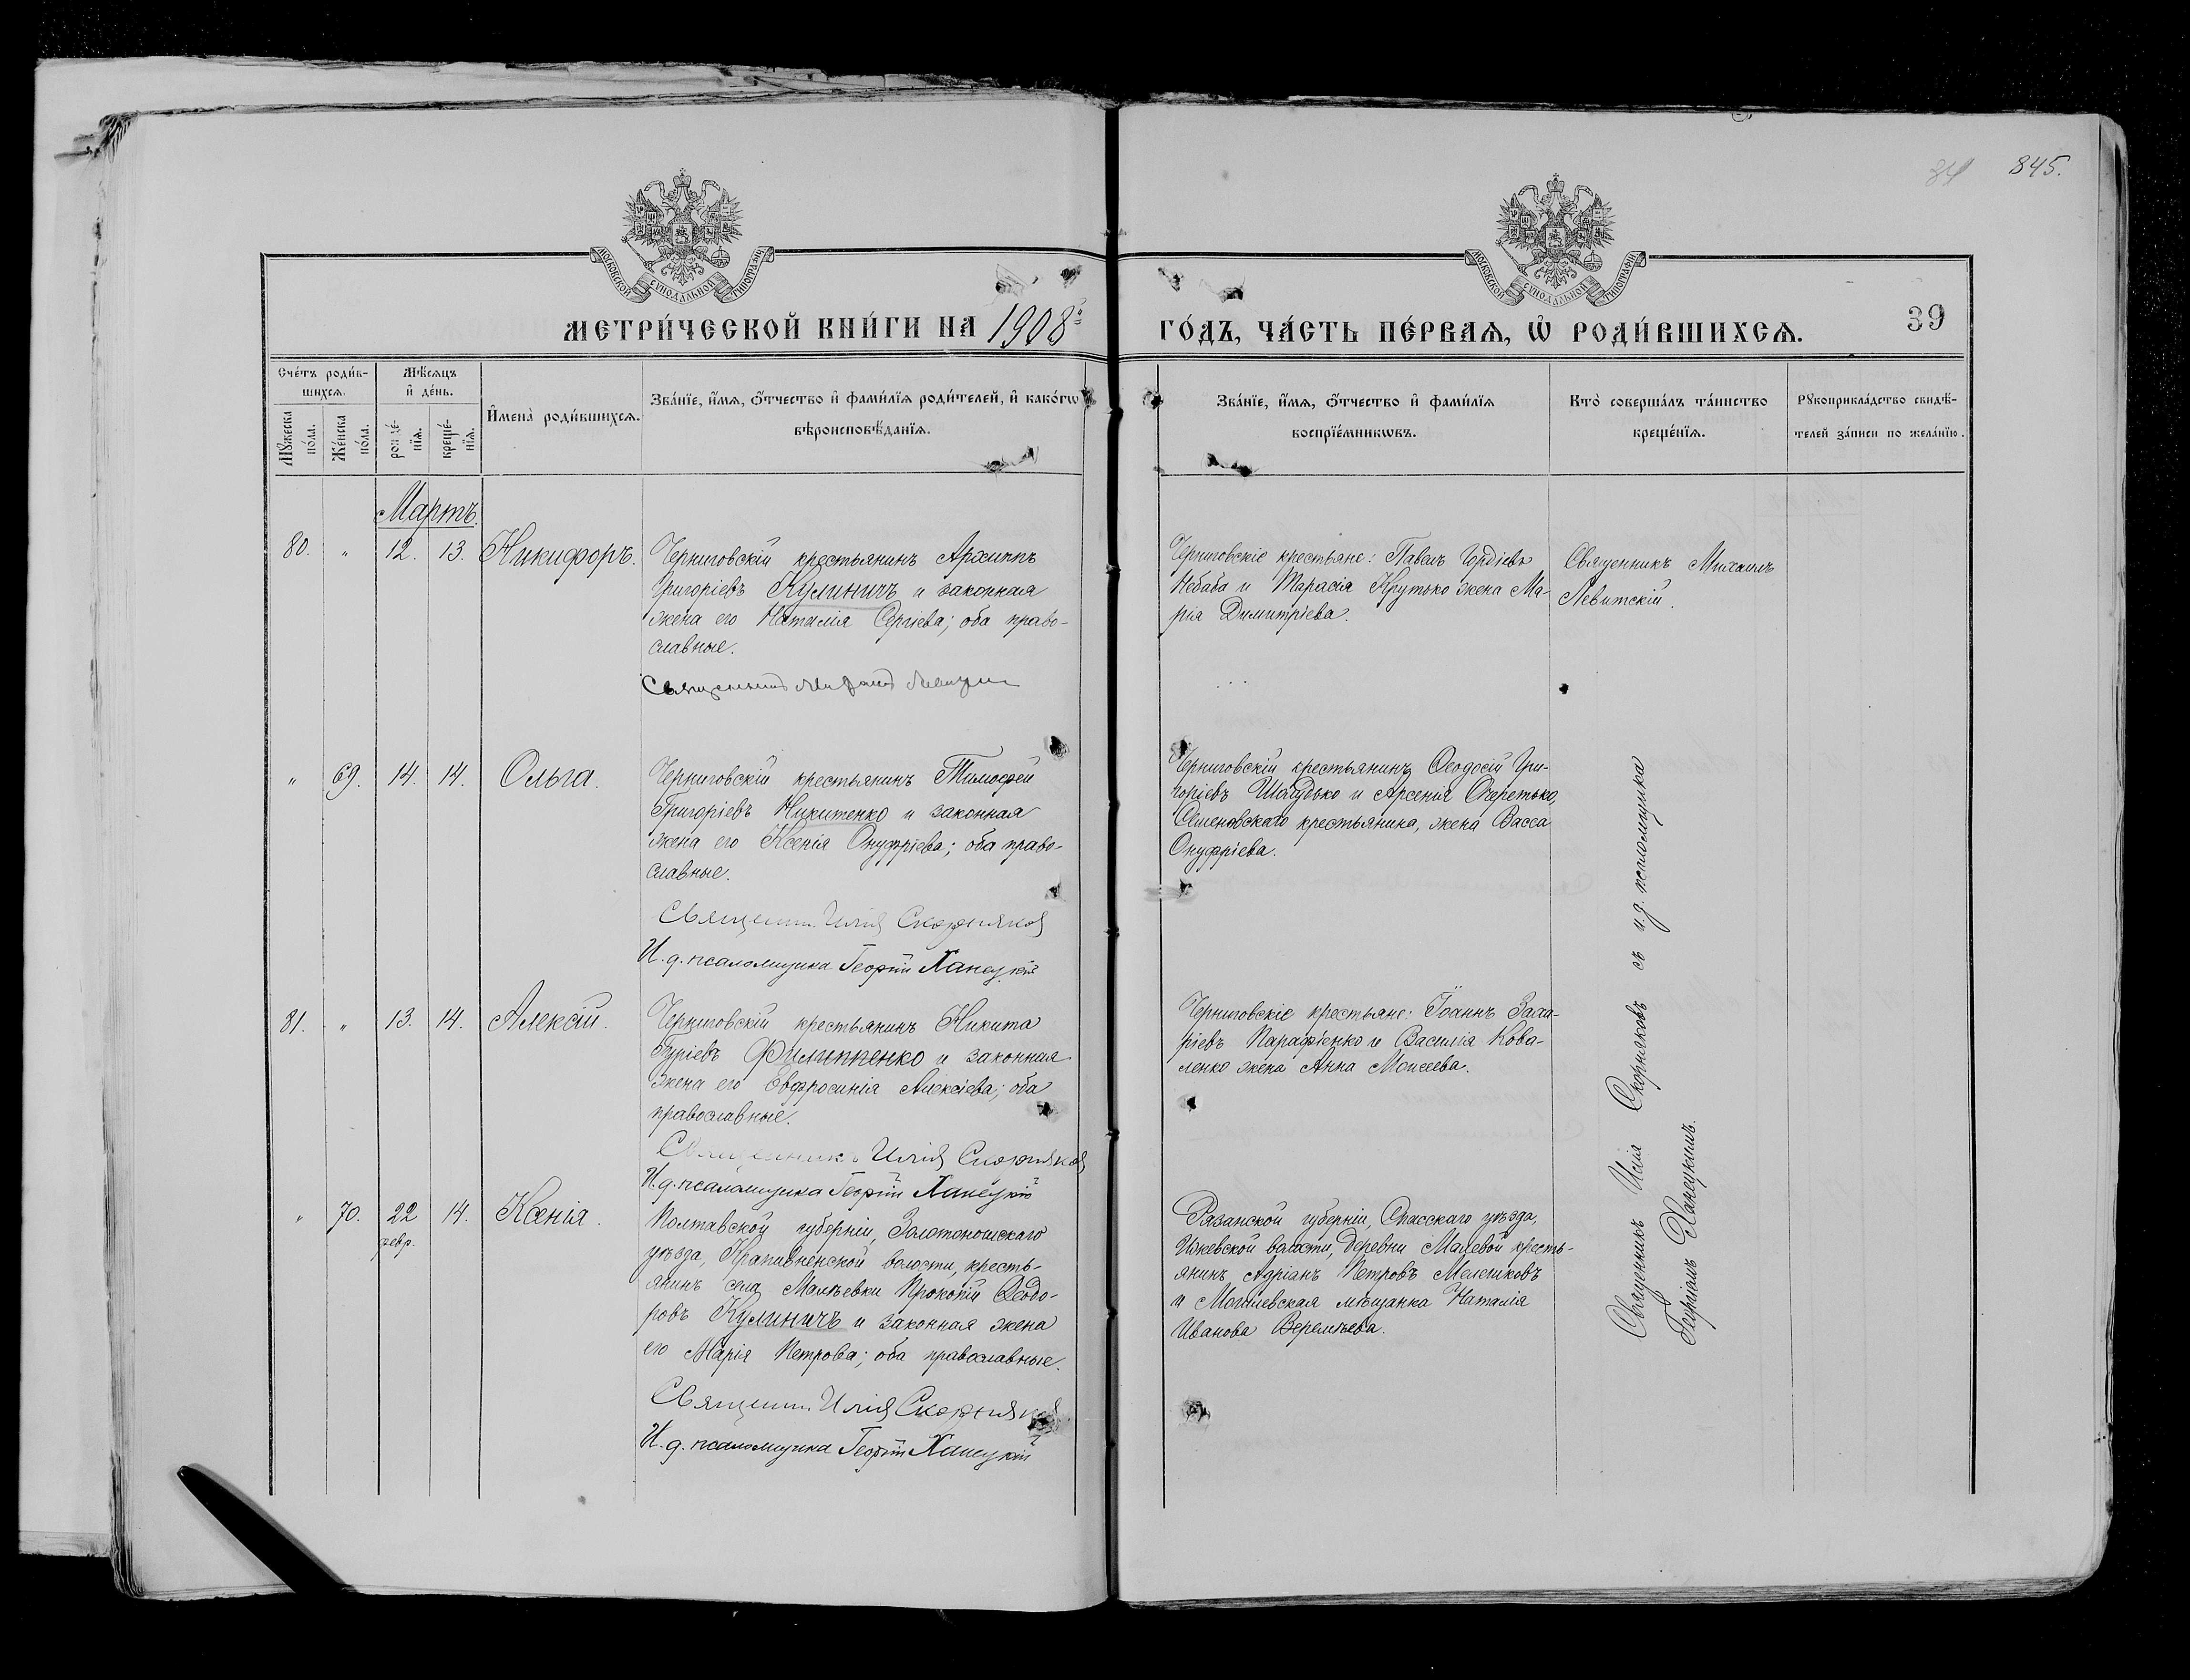 845.
МОСКОВСКОЙ СѴНОДАЛЬНОЙ ТИПОГРАФІИ
МОСКОВСКОЙ СѴНОДАЛЬНОЙ ТИПОГРАФІИ
МЕТРИ́ЧЕСКОЙ КНИ́ГИ НА 1908й
ГО́ДЪ, ЧА́СТЬ ПЕ́РВАѦ, Ѡ҆ РОДИ́ВШИХСѦ.
39
Сче́тъ роди́в-
шихсѧ.
Мꙋ́жеска
по́ла.
Же́нска
по́ла.
Мѣ́сѧцъ
и҆ де́нь.
рожде́-
нїѧ.
креще́-
нїѧ.
И҆мена̀ роди́вшихсѧ.
Зва́нїе, и҆́мѧ, ѻ҆́тчество и҆ фами́лїѧ роди́телей, и҆ како́гѡ
вѣроисповѣ́данїѧ.
Зва́нїе, и҆́мѧ, ѻ҆́тчество и҆ фами́лїѧ
воспрїе́мникѡвъ.
Кто̀ соверша́лъ та́инство
креще́нїѧ.
Рꙋкоприкла́дство свидѣ́-
телей за́писи по жела́нїю.
Мартъ.
80. " 12. 13. Никифоръ.
Черниговскій крестьянинъ Архиппъ
Григоріевъ Кулиничъ и законная
жена его Наталія Сергіева; оба право-
славные.
Священникъ Михаилъ
Черниговскіе крестьяне: Павелъ Гордіевъ
Небаба и Тарасія Крутько жена Ма-
рія Димитріева.
Священникъ Михаилъ
Левитскій.
" 69. 14. 14. Ольга.
Черниговскій крестьянинъ Тимофей
Григоріевъ Никитенко и законная
жена его Ксенія Онуфріева; оба право-
славные.
Священн. Илія Скорняков
И. д. псаломщика Георгій Ханецкій
Черниговскій крестьянинъ Ѳеодосій Гри-
горіевъ Шладько и Арсенія Очеретько,
Семеновскаго крестьянина, жена Васса
Онуфріева.
81. " 13. 14. Алексій.
Черниговскій крестьянинъ Никита
Гуріевъ Филиппенко и законная
жена его Евфросинія Алексіева; оба
православные.
Священникъ Илія Скорняков
И. д. псаломщика Георгій Ханецкій
Черниговскіе крестьяне: Іоаннъ Заха-
ріевъ Парафіенко и Василія Кова-
ленко жена Анна Моисеева.
" 70. 22 февр. 14. Ксенія.
Полтавской губерніи, Золотоношскаго
уѣзда, Крапивненской волости, кресть-
янинъ села Мальевки Прокопій Ѳеодо-
ровъ Кулиничъ и законная жена
его Марія Петрова; оба православные.
Священн. Илія Скорняков
И. д. псаломщика Георгій Ханецкій
Рязанской губерніи, Спасскаго уѣзда,
Ижевской волости, деревни Малевой кресть-
янинъ Адріанъ Петровъ Мелешковъ
и Могилевская мѣщанка Наталія
Иванова Веремѣева.
Священникъ Илія Скорняковъ съ и.д. псаломщика
Георгіемъ Ханецкимъ.